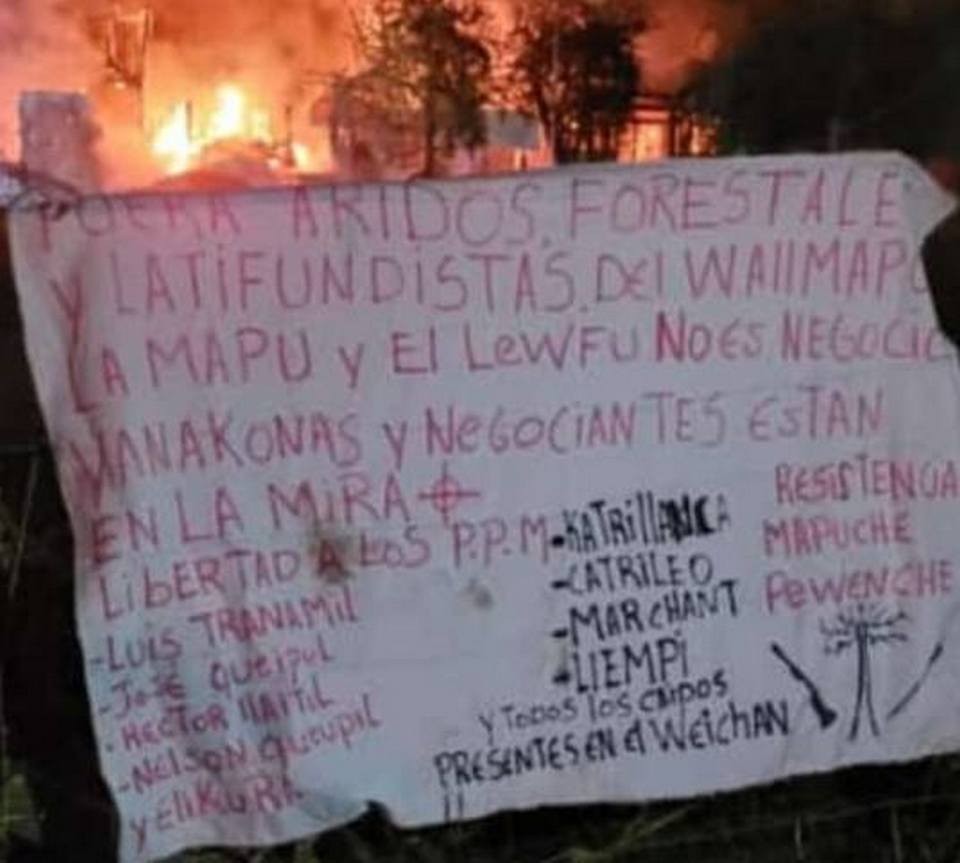 FUERA ARIDOS, FORESTALE
Y LATIFUNDISTAS. Del WAllMAPU
LA MAPU y El LeWFU No es NEGOCIO
YANAKONAS y NeGOCiANTES ESTAN
EN LA MiRA
LiBERTAD A LOS P.P.M
-LUIS TRANAMIL
-JoSÉ QUEIPUL
-HECTOR llAITIL
-NelSON QUEUPIL
y EliKURA
-KATRillANCA
-CATRILEO
-MARCHANT
-LIEMPI
y TODOS los CAIDOS
PRESENTES EN el WeichAN
!!
RESISTENCIA
MAPUCHE
PeWENCHE